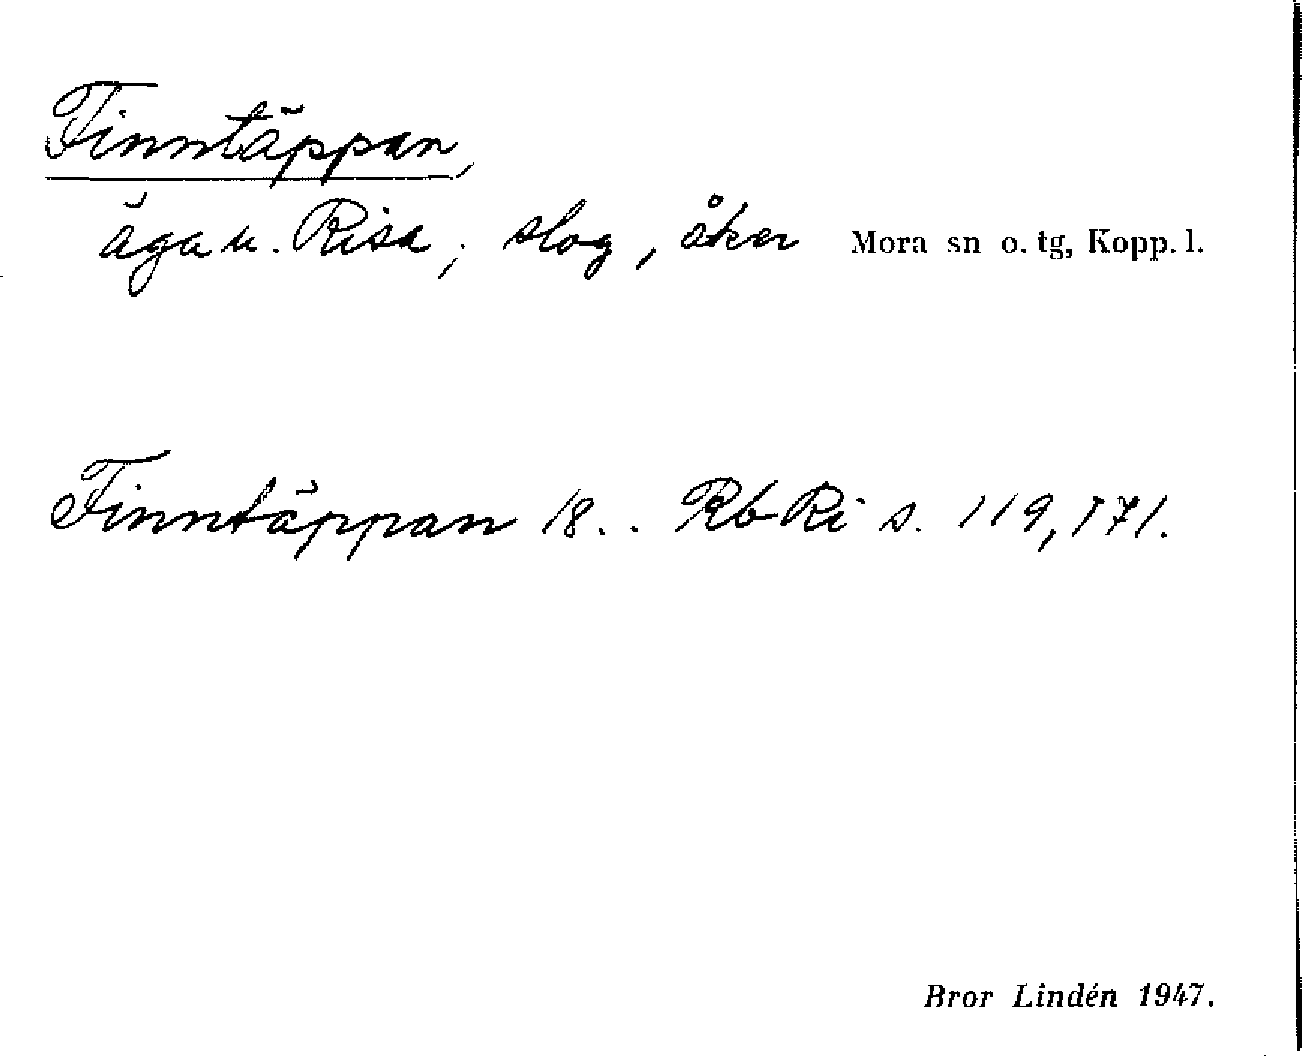 Finntäppan,
äga u. Risa; slog, åker Mora sn o. tg, Kopp. l.
Finntäppan 18.. Rb Ri s. 119, 171.
Bror Lindén 1947.